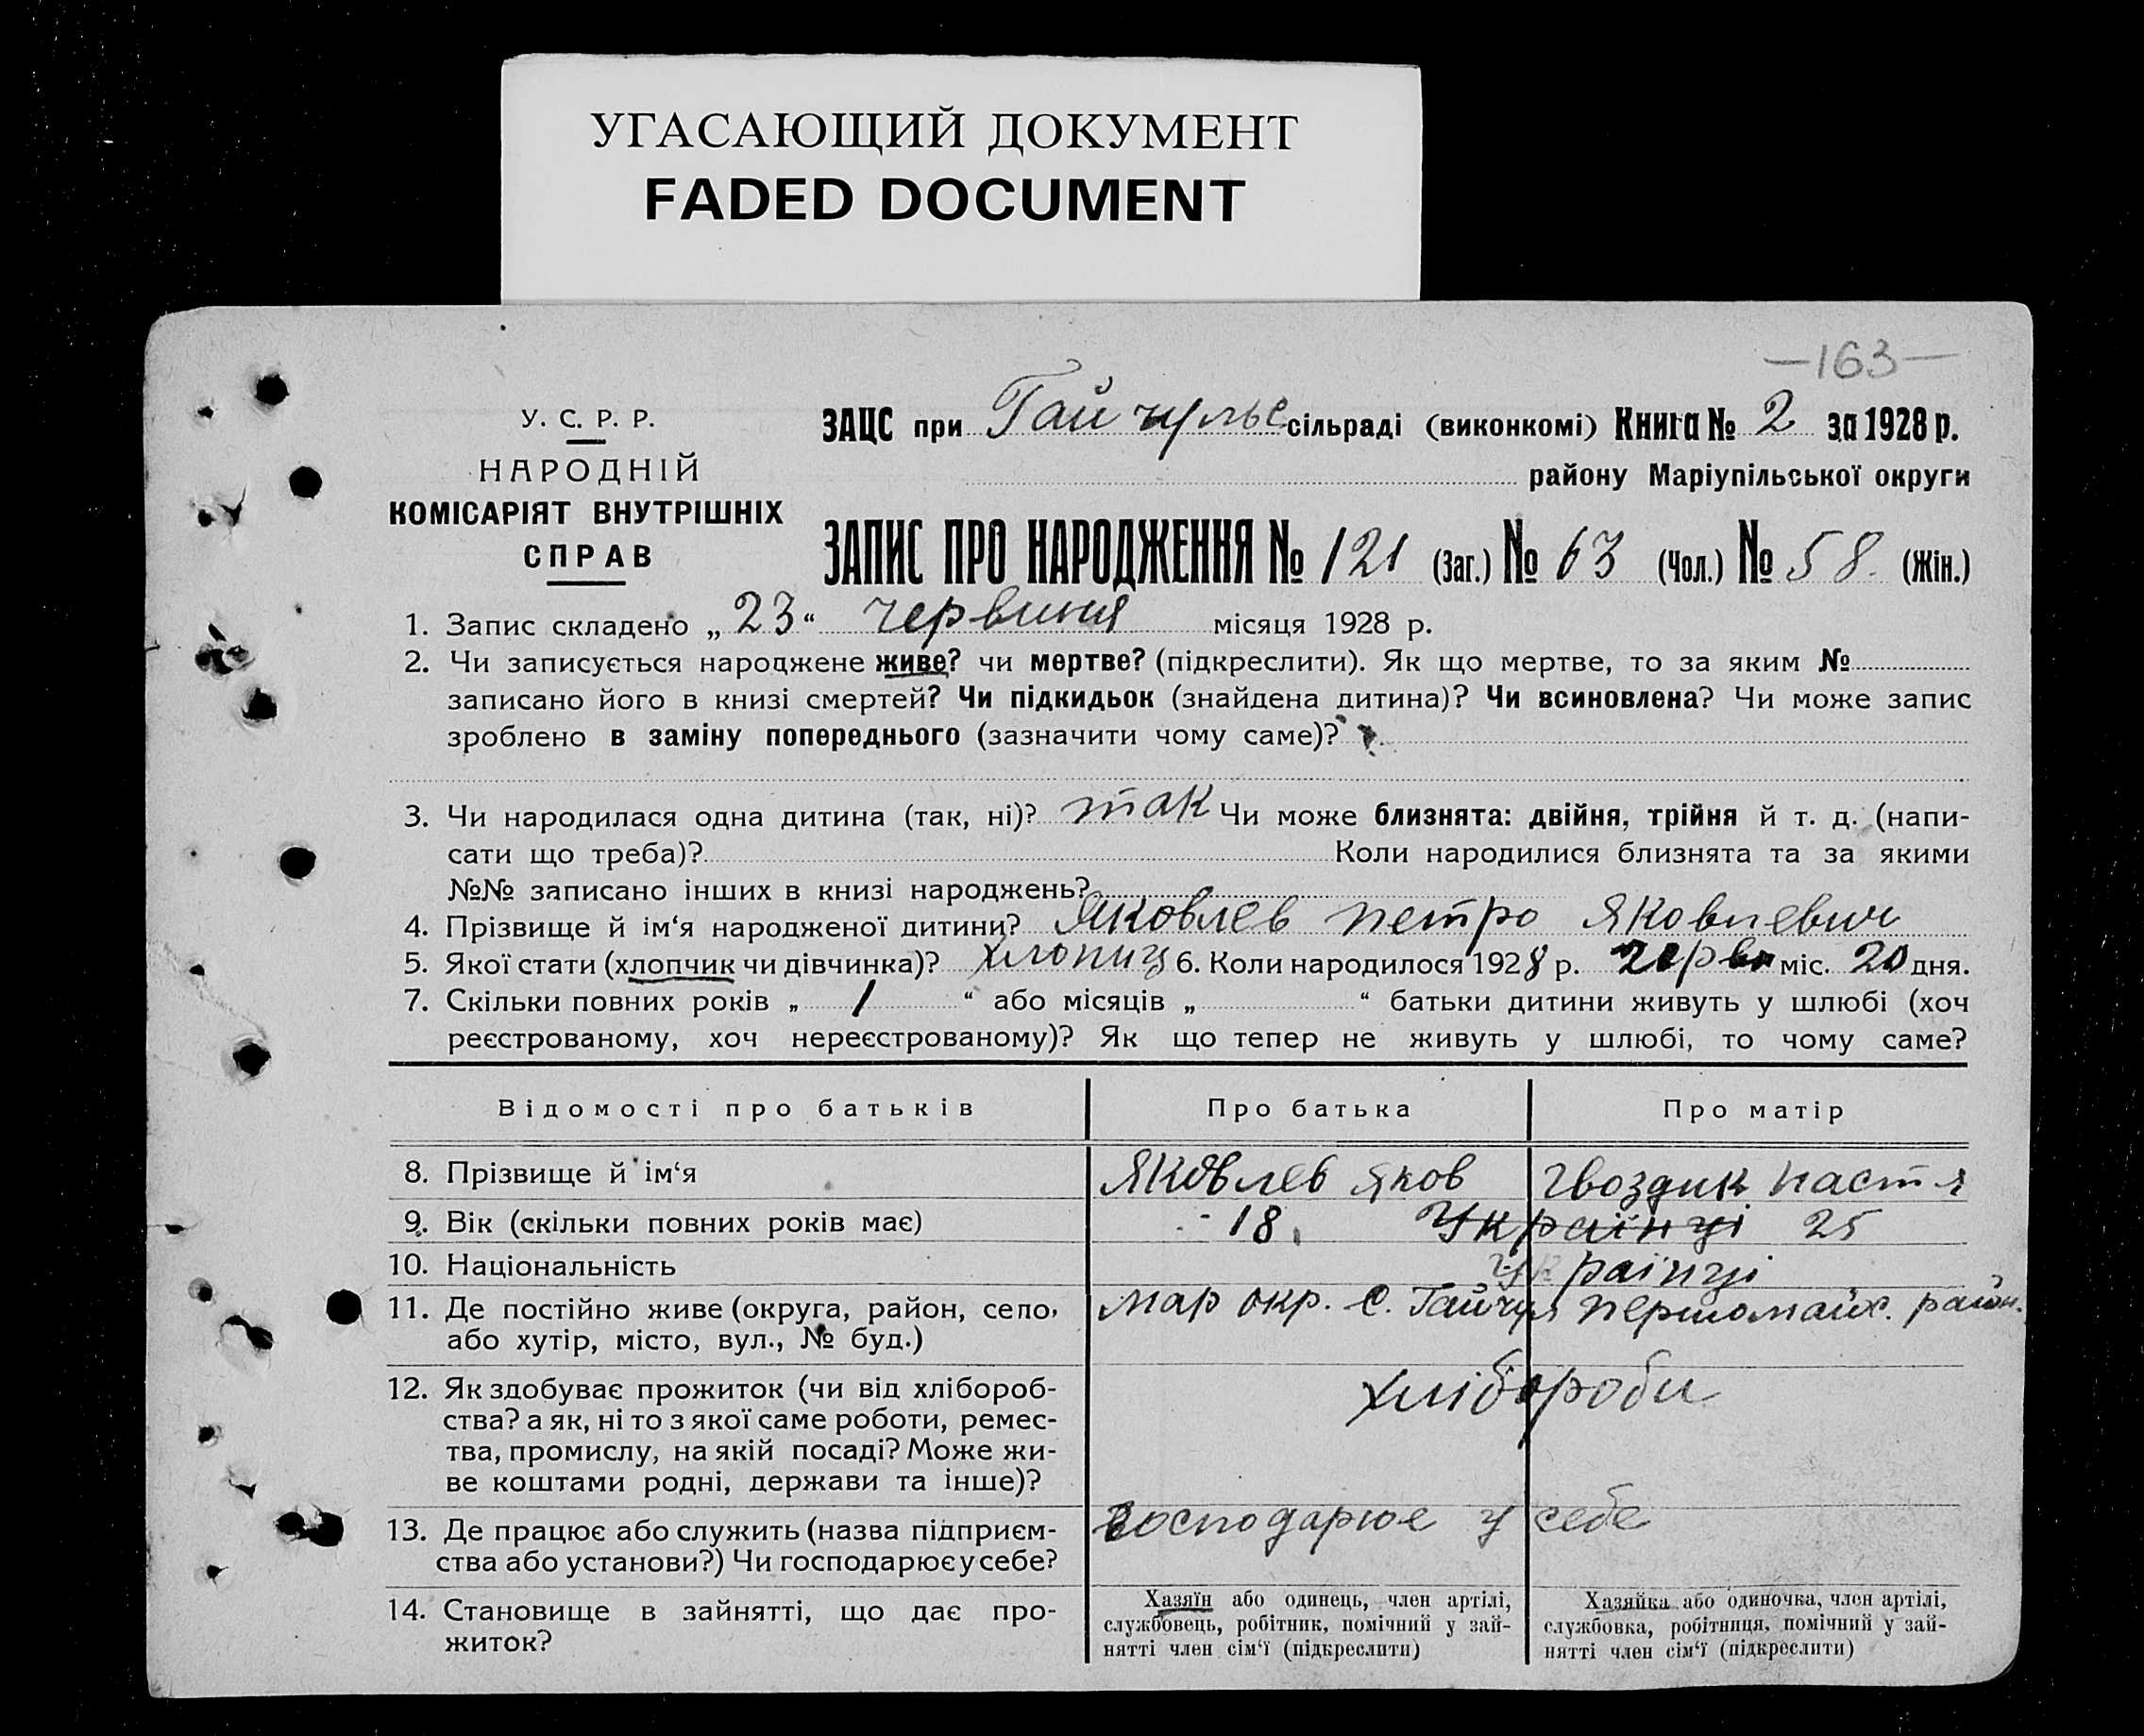 УГАСАЮЩИЙ ДОКУМЕНТ
FADED DOCUMENT
—163—
У. С. Р. Р.
НАРОДНІЙ
КОМІСАРІЯТ ВНУТРІШНІХ
СПРАВ
ЗАЦС при Гайчульс сільраді (виконкомі) Книга № 2 за 1928 р.
району Маріупільської округи
ЗАПИС ПРО НАРОДЖЕННЯ № 121 (Заг.) № 63 (Чол.) № 58 (Жін.)
1. Запис складено „ 23 “ червиня місяця 1928 р.
2. Чи записується народжене живе? чи мертве? (підкреслити). Як що мертве, то за яким №
записано його в книзі смертей? Чи підкидьок (знайдена дитина)? Чи всиновлена? Чи може запис
зроблено в заміну попереднього (зазначити чому саме)?
3. Чи народилася одна дитина (так, ні)? так Чи може близнята: двійня, трійня й т. д. (напи-
сати що треба)? Коли народилися близнята та за якими
№№ записано інших в книзі народжень?
4. Прізвище й ім‘я народженої дитини? Яковлев Петро Яковлевич
5. Якої стати (хлопчик чи дівчинка)? хлопиц 6. Коли народилося 1928 р. черв міс. 20 дня.
7. Скільки повних років „ 1 “ або місяців „ “ батьки дитини живуть у шлюбі (хоч
реєстрованому, хоч нереєстрованому)? Як що тепер не живуть у шлюбі, то чому саме?
Відомості про батьків Про батька Про матір
8. Прізвище й ім‘я Яковлев Яков Гвоздик Настя
9. Вік (скільки повних років має) 18 Українці 25
10. Національність Українці
11. Де постійно живе (округа, район, село, мар окр. с. Гайчул Першомайс. район.
або хутір, місто, вул., № буд.)
12. Як здобуває прожиток (чи від хлібороб- хлібороби
ства? а як, ні то з якої саме роботи, ремес-
тва, промислу, на якій посаді? Може жи-
ве коштами родні, держави та інше)?
13. Де працює або служить (назва підприєм- господарює у себе
ства або установи?) Чи господарює у себе?
14. Становище в зайнятті, що дає про-
житок?
Хазяїн або одинець, член артілі,
службовець, робітник, помічний у зай-
нятті член сім‘ї (підкреслити)
Хазяйка або одиночка, член артілі,
службовка, робітниця, помічний у зай-
нятті член сім‘ї (підкреслити)